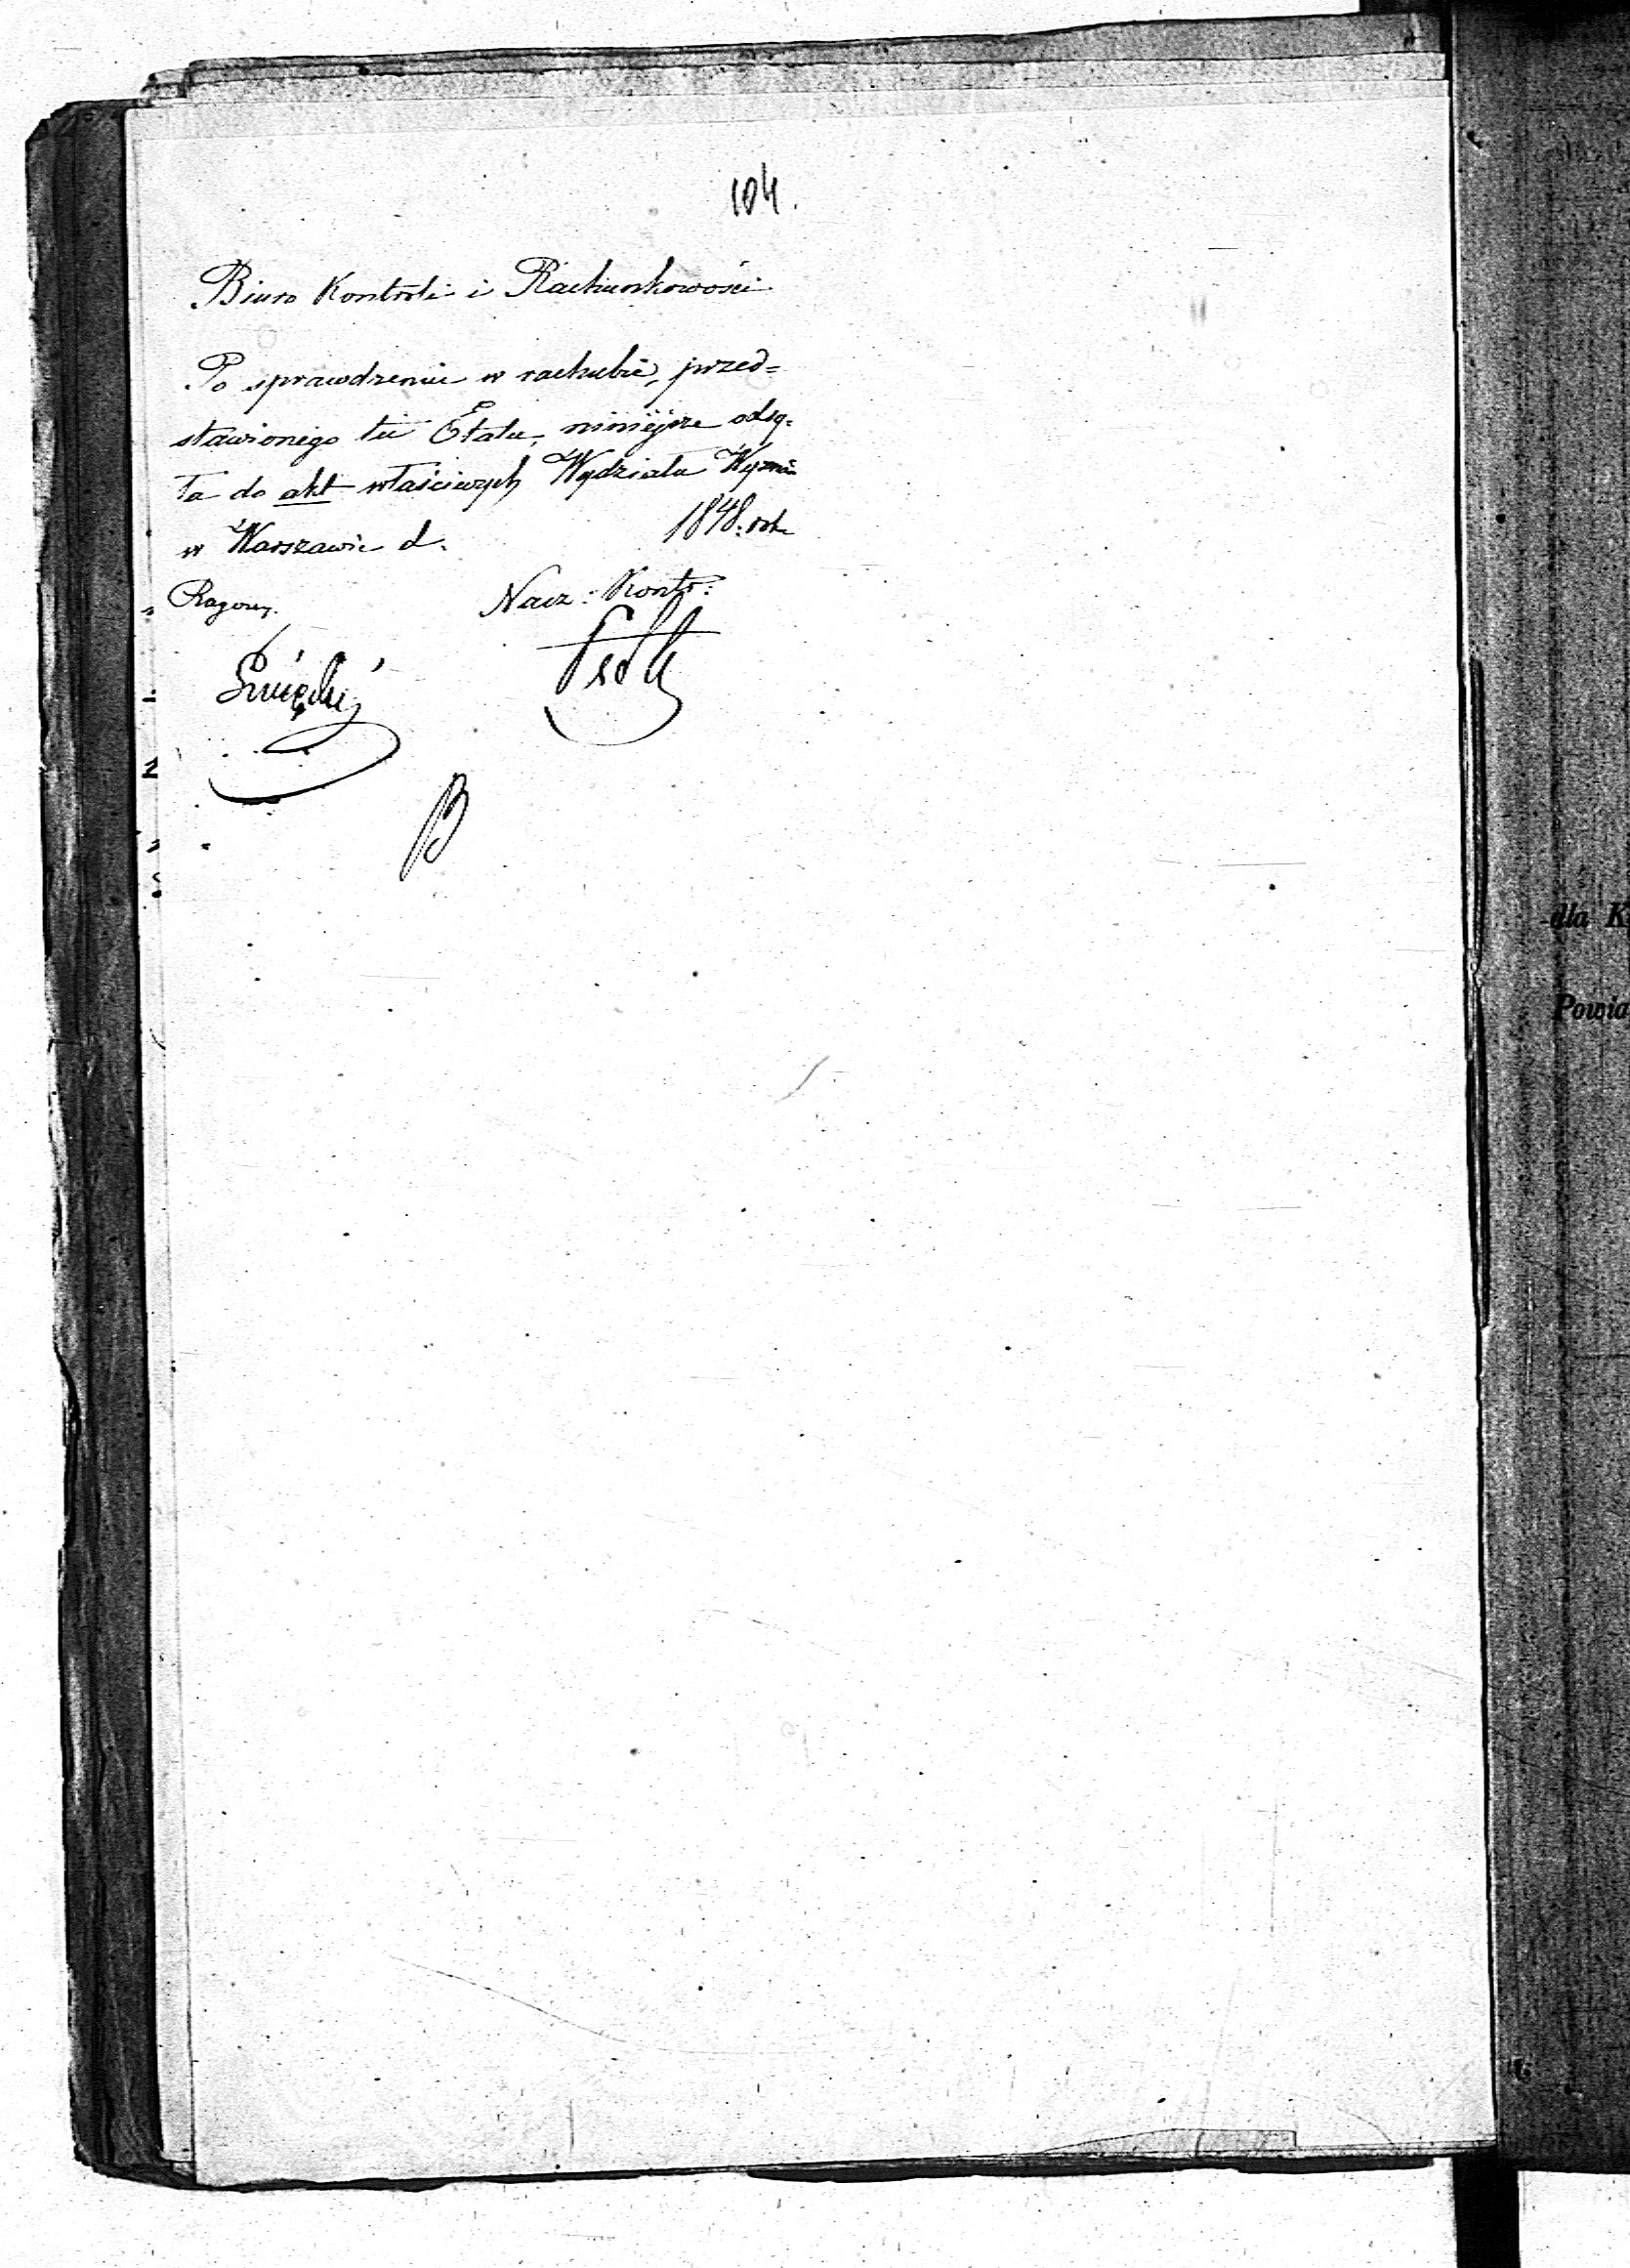 104.
Biuro Kontroli i Rachunkowości
Po sprawdzeniu w rachubie, przed=
stawionego tu Etatu, niniejsze odsy=
ła do akt właściwych Wydziału Wyznań
w Warszawie d. 1848. rok
Nacz: Kontr:
B
dla K
Powia